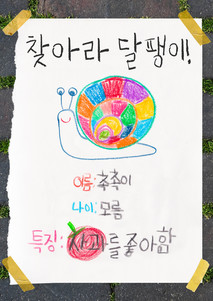 찾아라 달팽이!
이름: 촉촉이
나이: 모름
특징: 사과를 좋아함